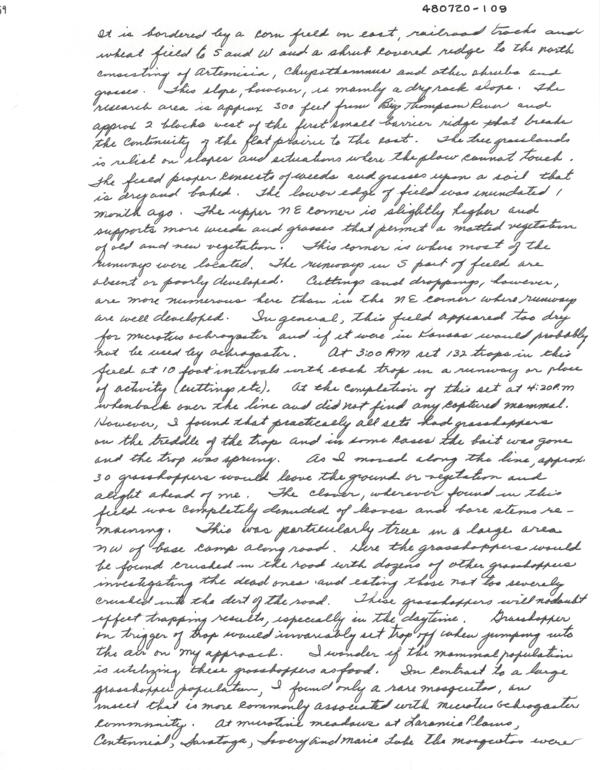 59
480720-109
It is bordered by a corn field on east, railroad tracks and
wheat field to S and W and a shrub covered ridge to the north
consisting of Artemisia, Chrysothamnus and other shrubs and
grasses. This slope, however, is mainly a dry rock slope. The
research area is approx 300 feet from Big Thompson River and
approx 2 blocks west of the first small barrier ridge that breaks
the continuity of the flat prairie to the east. The true grasslands
is relict on slopes and situations where the plow cannot touch.
The field proper consists of weeds and grasses upon a soil that
is dry and baked. The lower edge of field was inundated 1
month ago. The upper NE corner is slightly higher and
supports more weeds and grasses that permit a matted vegetation
of old and new vegetation. This corner is where most of the
runways were located. The runways in S part of field are
absent or poorly developed. Cuttings and droppings, however,
are more numerous here than in the NE corner where runways
are well developed. In general, this field appeared too dry
for microtus ochrogaster and if it were in Kansas would probably
not be used by ochrogaster. At 3:00 PM set 132 traps in this
field at 10 foot intervals with each trap in a runway or place
of activity (cuttings, etc). At the completion of this set at 4:20 P.M
when back over the line and did not find any captured mammal.
However, I found that practically all sets had grasshoppers
on the treddle of the trap and in some cases the bait was gone
and the trap was sprung. As I moved along the line, approx
30 grasshoppers would leave the ground or vegetation and
alight ahead of me. The clover, wherever found in this
field was completely denuded of leaves and bare stems re-
maining. This was particularly true in a large area
NW of base camp along road. Here the grasshoppers would
be found crushed in the road with dozens of other grasshoppers
investigating the dead ones and eating those not too severely
crushed into the dirt of the road. These grasshoppers will no doubt
effect trapping results, especially in the daytime. Grasshopper
on trigger of trap would invariably set trap off when jumping into
the air on my approach. I wonder if the mammal population
is utilizing these grasshoppers as food. In contrast to a large
grasshopper population, I found only a rare mosquitoe, an
insect that is more commonly associated with microtus ochrogaster
community. At microtine meadows at Laramie Plains,
Centennial, Saratoga, Savery and Marie Lake the mosquitoes were